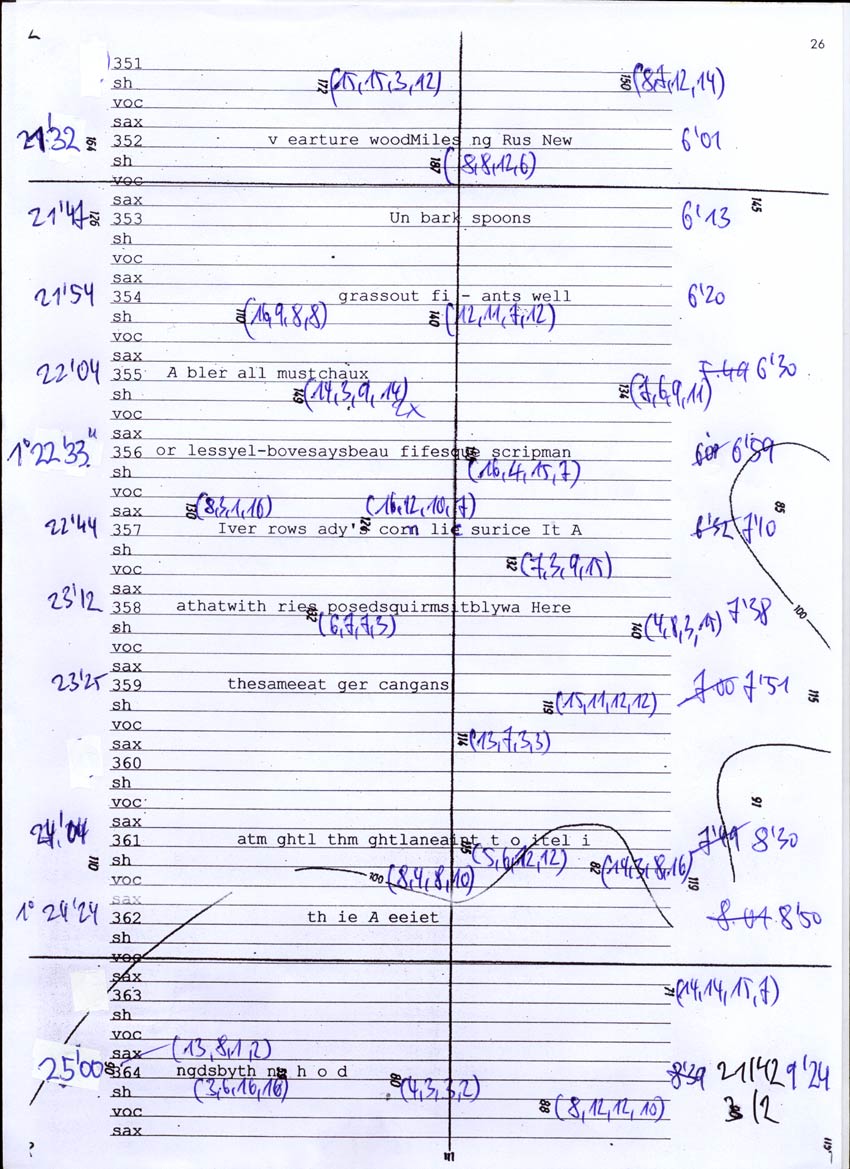 26
351
sh 172 (15,15,3,12) 150 (8,7,12,14)
voc
sax
21'32 164 352 v earture woodMiles ng Rus New 6'01
sh 187 (8,8,12,6)
voc
sax 145
21'47 126 353 Un bark spoons 6'13
sh
voc
sax
21'54 354 grassout fi - ants well 6'20
sh 110 (16,9,8,8) 140 (12,11,7,12)
voc
sax
22'04 355 A bler all mustchaux 6'30
sh 149 (14,3,9,14) 2x 134 (7,6,9,11)
voc
sax
1° 22'33" 356 or lessyel-bovesaysbeau fifesque scripman 6'59
sh (16,4,15,7)
voc
sax 130 (8,3,1,16) (16,12,10,7) 85
22'44 357 Iver rows ady' 126 corn lic surice It A 6'52 7'10
sh
voc 132 (7,3,9,15)
sax
23'12 358 athatwith ries posedsquirmsitblywa Here 7'38
100
sh 132 (6,7,7,3) 140 (4,8,3,15)
voc
sax
23'25 359 thesameeat ger cangans 7'00 7'51 115
sh 119 (15,11,12,12)
voc
sax 114 (13,7,3,3)
360
sh
voc 91
sax
24'04 361 atm ghtl thm ghtlaneaint t o itel i 7'49 8'30
110 sh 115 (5,6,12,12) 82 (14,3,8,16) 119
voc 100 (8,4,8,10)
sax
1° 24'24 362 th ie A eeiet 8'50
sh
voc
sax
363 71 (14,14,15,7)
sh
voc
sax (13,8,1,2)
25'00 90 364 ngdsbyth n h o d 8'39 21/42 9'24
sh (3,6,16,16) 80 (4,3,3,2)
voc 88 (8,12,12,10) 3/2
sax
111